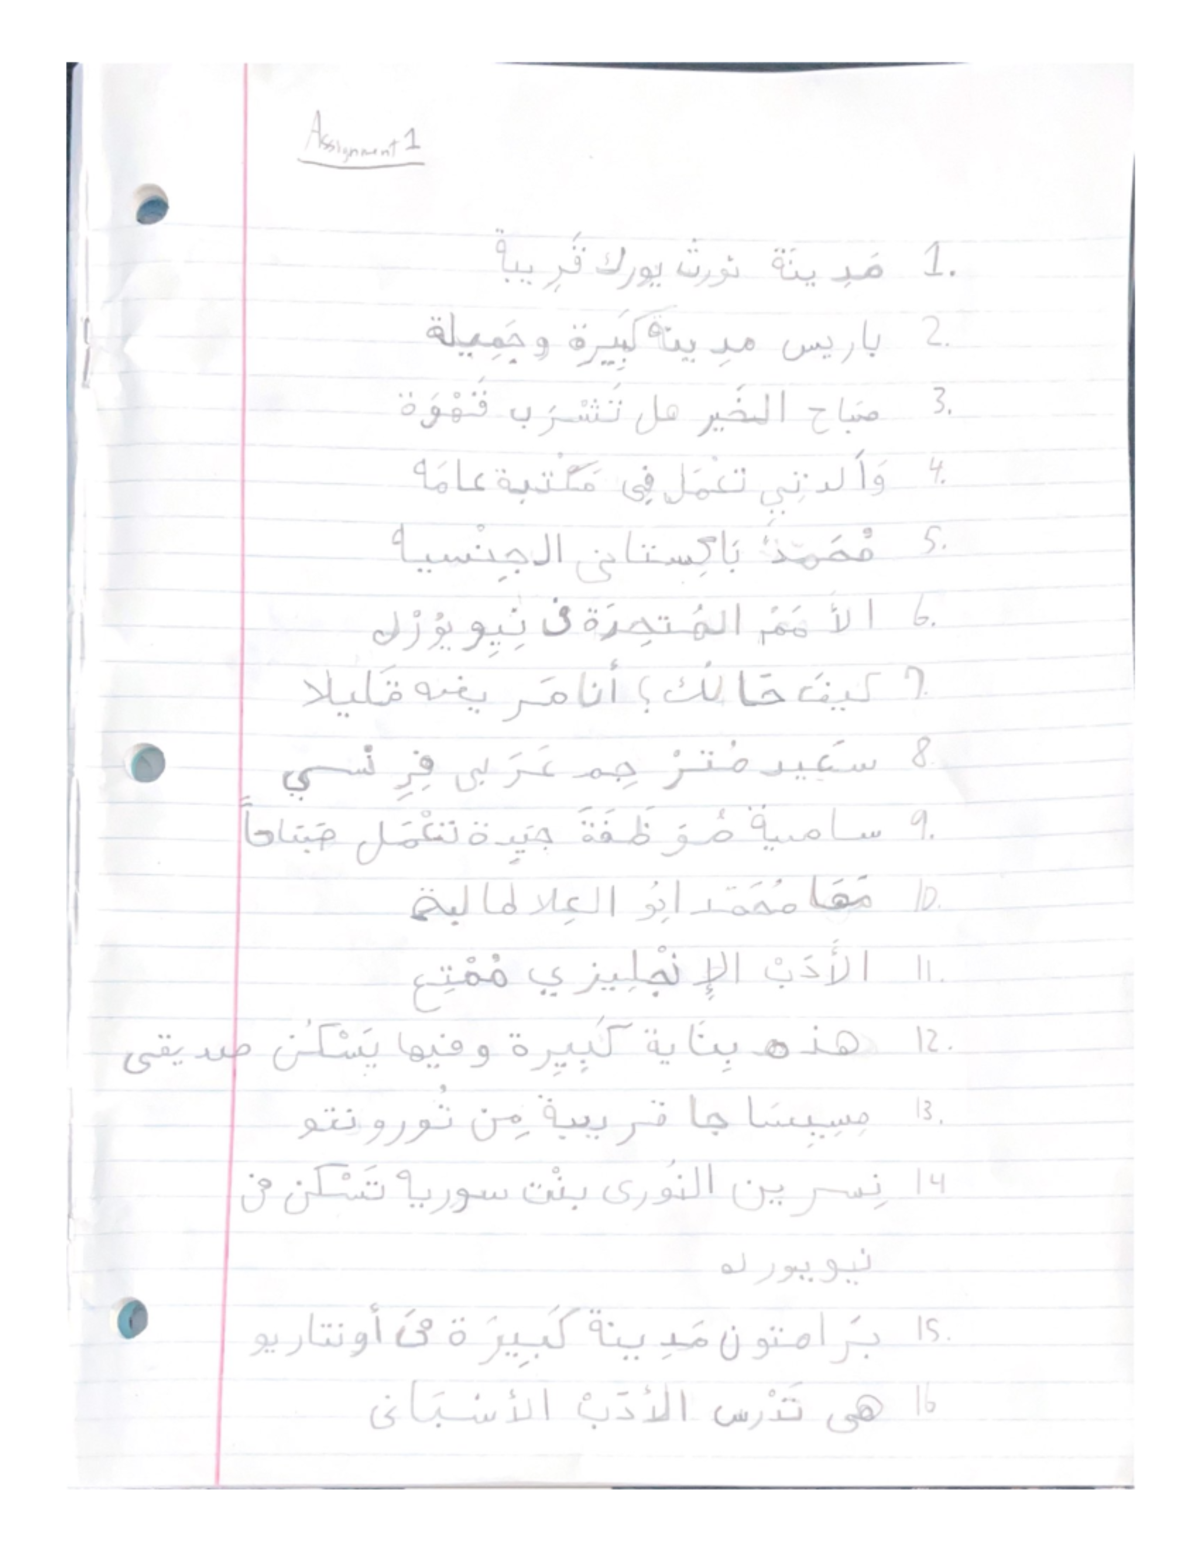 Assignment 1
1. مَدِينَة نورث يورك قَرِيبة
2. باريس مدِينة كَبِيرة وجَمِيلة
3. صَباح الخَير هل تَشْرَب قَهْوَة
4. وَالدتِي تَعْمَل فِي مَكْتبة عامَه
5. مُحَمدٌ بَاكِستاني الجِنْسيه
6. الأمَمُ المُتحِدَة في نِيِويُوْرْك
7. كيفَ حَالُك؟ أنا مَريضه قَليلا
8. سَعِيد مُترْجِم عَرَبى فِرِنْسي
9. سامية مُوَظَفَة جَيِدة تَعْمَل صَبَاحاً
10. مَهَا مُحَمَد ابُو العِلا طالبة
11. الأَدَبْ الإنْجْلِيزي مُمْتِع
12. هذه بِنَاية كَبِيِرة وفيها يَسْكُن صديقى
13. مِسِيِسَاجا قريبة مِن تُورونتو
14 نِسرين النُورى بنْت سوريه تَسْكن في
نيويورك
15. بَرامتون مَدِينة كَبِيرَة في أونتاريو
16 هي تَدْرس الأدَبْ الأسْبَانى